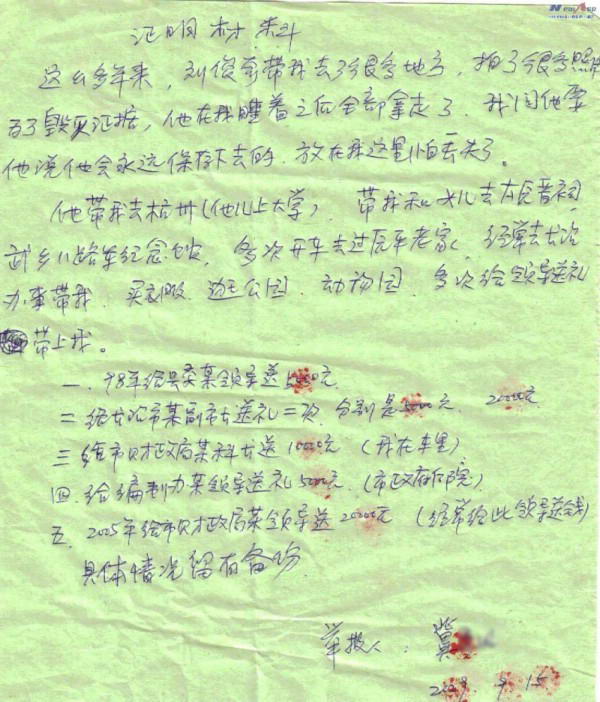 证明材料
这么多年来，刘俊奇带我去了很多地方，拍了很多照
为了毁灭证据，他在我睡着之后全部拿走了，我问他要
他说他会永远保存下去的，放在我这里怕丢失了。
他带我去杭州（他儿上大学），带我和女儿去太原晋祠
武乡八路军纪念馆，多次开车去过原平老家，经常去长治
办事带我，买衣服，逛公园，动物园，多次给领导送礼
带上我。
一、98年给县委某领导送5000元
二、给长治市某副市长送礼二次，分别是5000元、20000元
三、给市财政局某科长送10000元（我在车里）
四、给编制办某领导送礼5000元，（市政府后院）
五、2005年给市财政局某领导送20000元（经常给此领导送钱）
具体情况留有备份
举报人：冀
2009.9.15